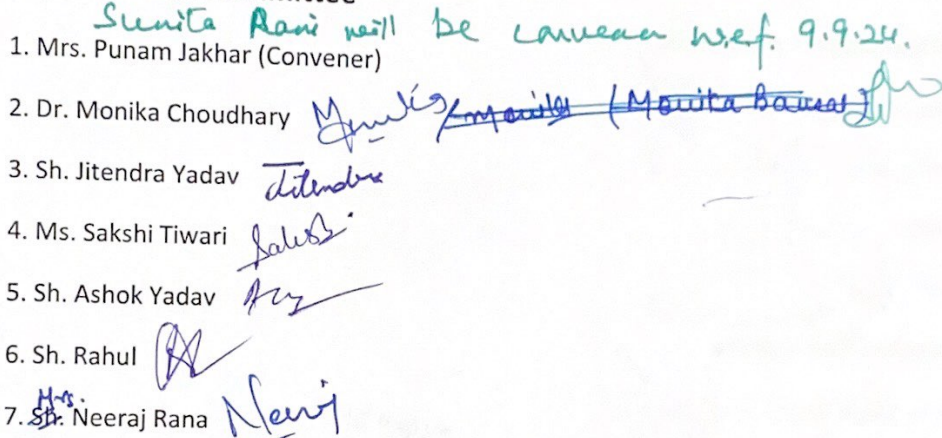 Sunita Rani will be convener w.e.f. 9.9.24.
1. Mrs. Punam Jakhar (Convener)
2. Dr. Monika Choudhary /Monika (Monika Bansal)
3. Sh. Jitendra Yadav Jitendra
4. Ms. Sakshi Tiwari Sakshi
5. Sh. Ashok Yadav
6. Sh. Rahul
Mrs.
7. Sh. Neeraj Rana Neeraj